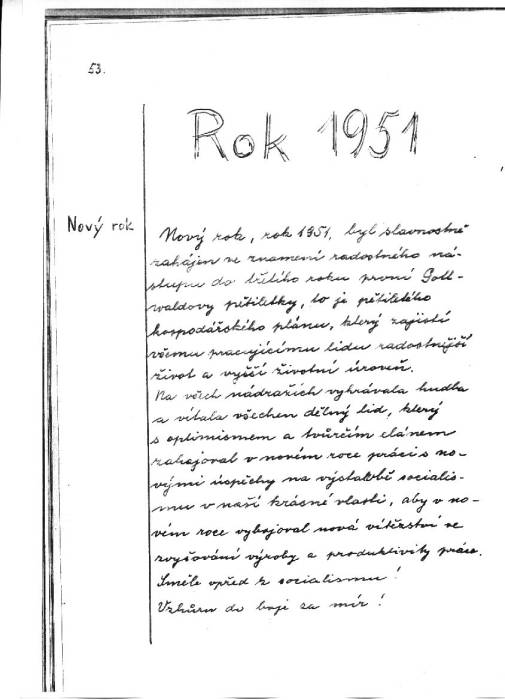 53.
Rok 1951
Nový rok
Nový rok, rok 1951, byl slavnostně
zahájen ve znamení radostného ná-
stupu do třetího roku první Gott-
waldovy pětiletky, to je pětiletého
hospodářského plánu, který zajistí
všemu pracujícímu lidu radostnější
život a vyšší životní úroveň.
Na všech nádražích vyhrávala hudba
a vítala všechen dělný lid, který
s optimismem a tvůrčím elánem
zahajoval v novém roce práci s no-
vými úspěchy na výstavbě socialis-
mu v naší krásné vlasti, aby v no-
vém roce vybojoval nová vítězství ve
zvyšování výroby a produktivity práce.
Směle vpřed k socialismu!
Vzhůru do boje za mír!